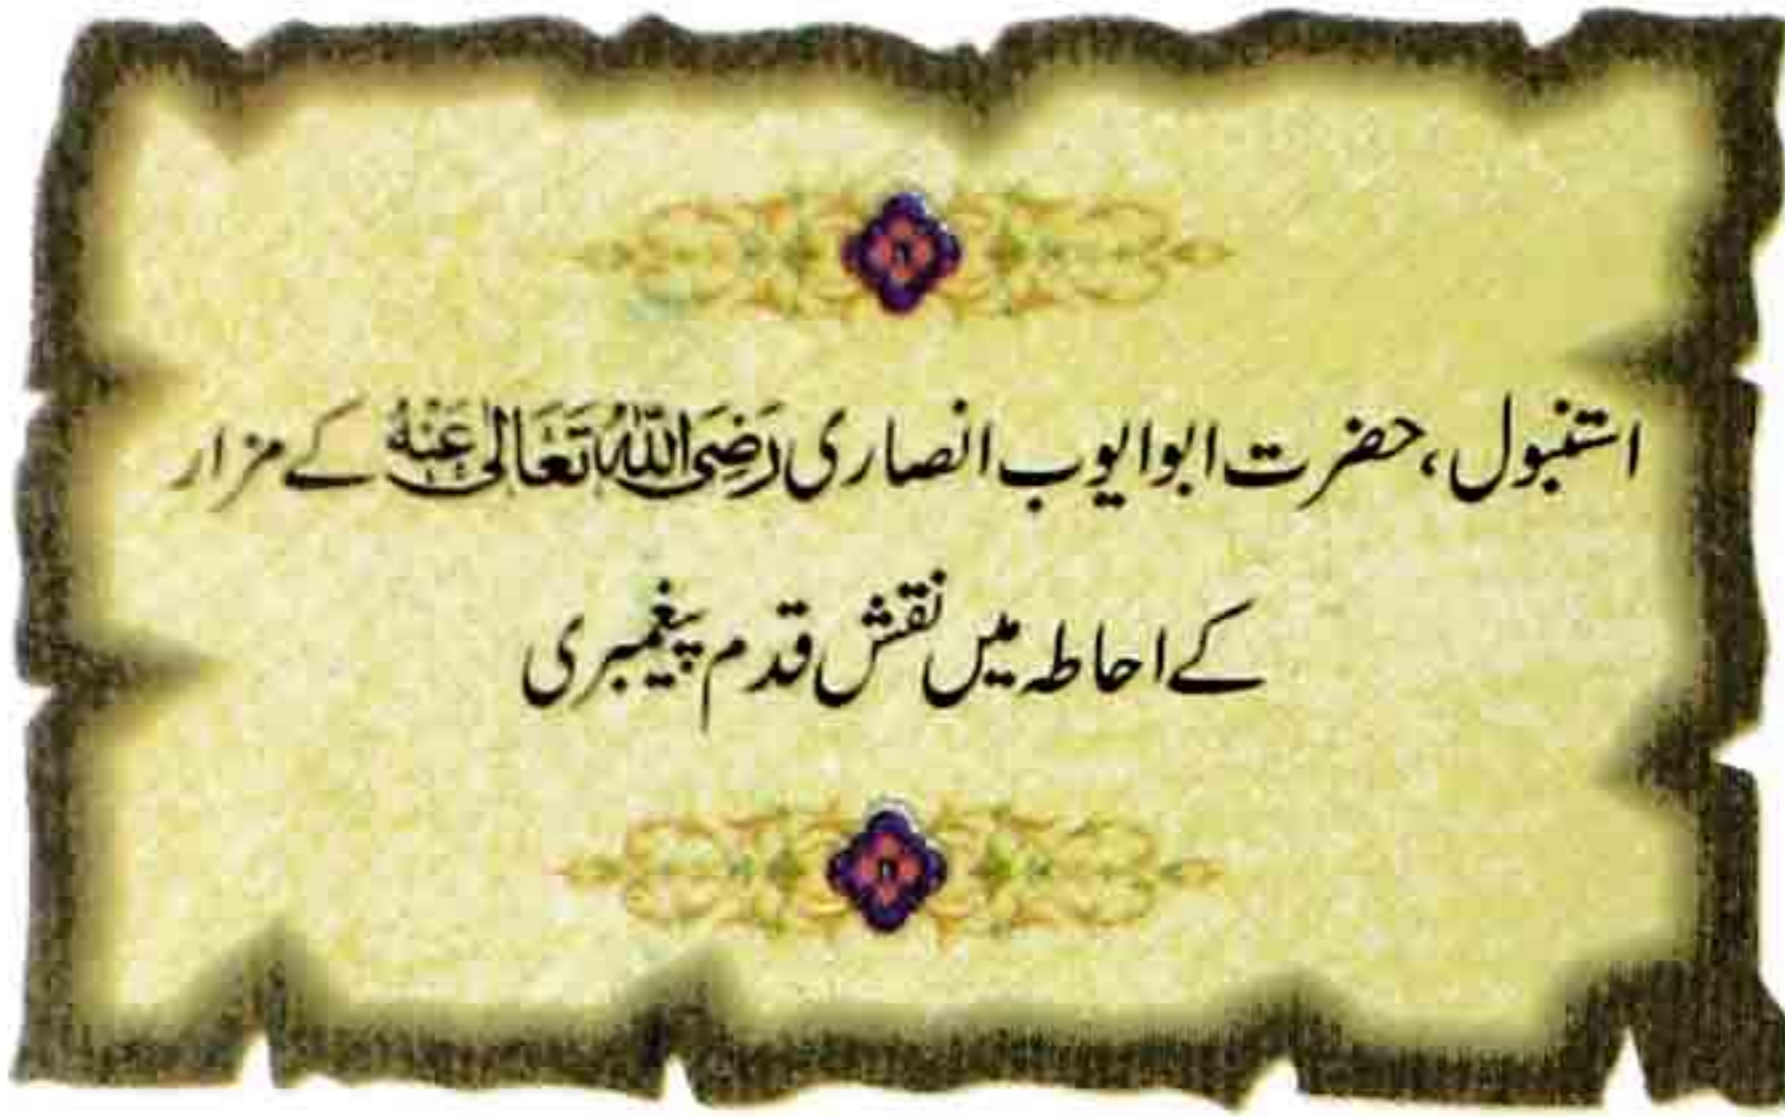 استنبول، حضرت ابوایوب انصاری رَضِیَ اللّٰہُ تَعَالٰی عَنْہُ کے مزار
کے احاطہ میں نقش قدم پیغمبری